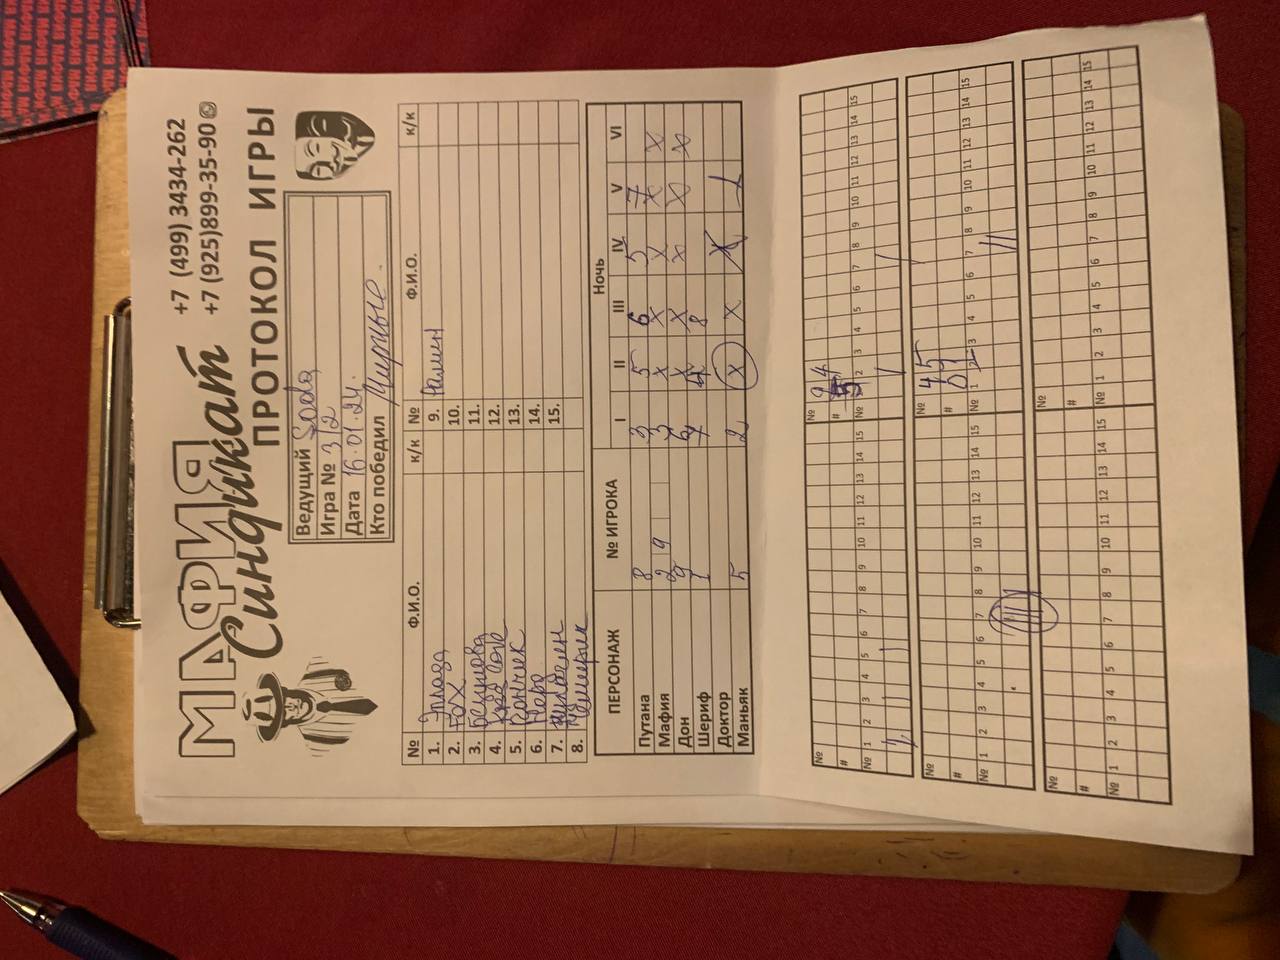 МАФИЯ
Синдикат
+7 (499) 3434-262
+7 (925)899-35-90
ПРОТОКОЛ ИГРЫ
Ведущий Soda
Игра № 3/2
Дата 16.01.24.
Кто победил Мирные.
№ Ф.И.О. к/к № Ф.И.О. к/к
1. Элада 9. Рамин
2. Fox 10.
3. 11.
4. 12.
5. Пончик 13.
6. Неро 14.
7. 15.
8.
ПЕРСОНАЖ № ИГРОКА Ночь
I II III IV V VI
Путана 8 3 5 6 5 7
Мафия 2 9 3 X X X X X
Дон 9 6 X X X X X
Шериф 1 8
Доктор
Маньяк 5 2 X X X 1
№
#
№ 1 2 3 4 5 6 7 8 9 10 11 12 13 14 15
№ 9 4
#
№ 1 2 3 4 5 6 7 8 9 10 11 12 13 14 15
№
#
№ 1 2 3 4 5 6 7 8 9 10 11 12 13 14 15
№ 4 5
#
№ 1 2 3 4 5 6 7 8 9 10 11 12 13 14 15
№
#
№ 1 2 3 4 5 6 7 8 9 10 11 12 13 14 15
№
#
№ 1 2 3 4 5 6 7 8 9 10 11 12 13 14 15